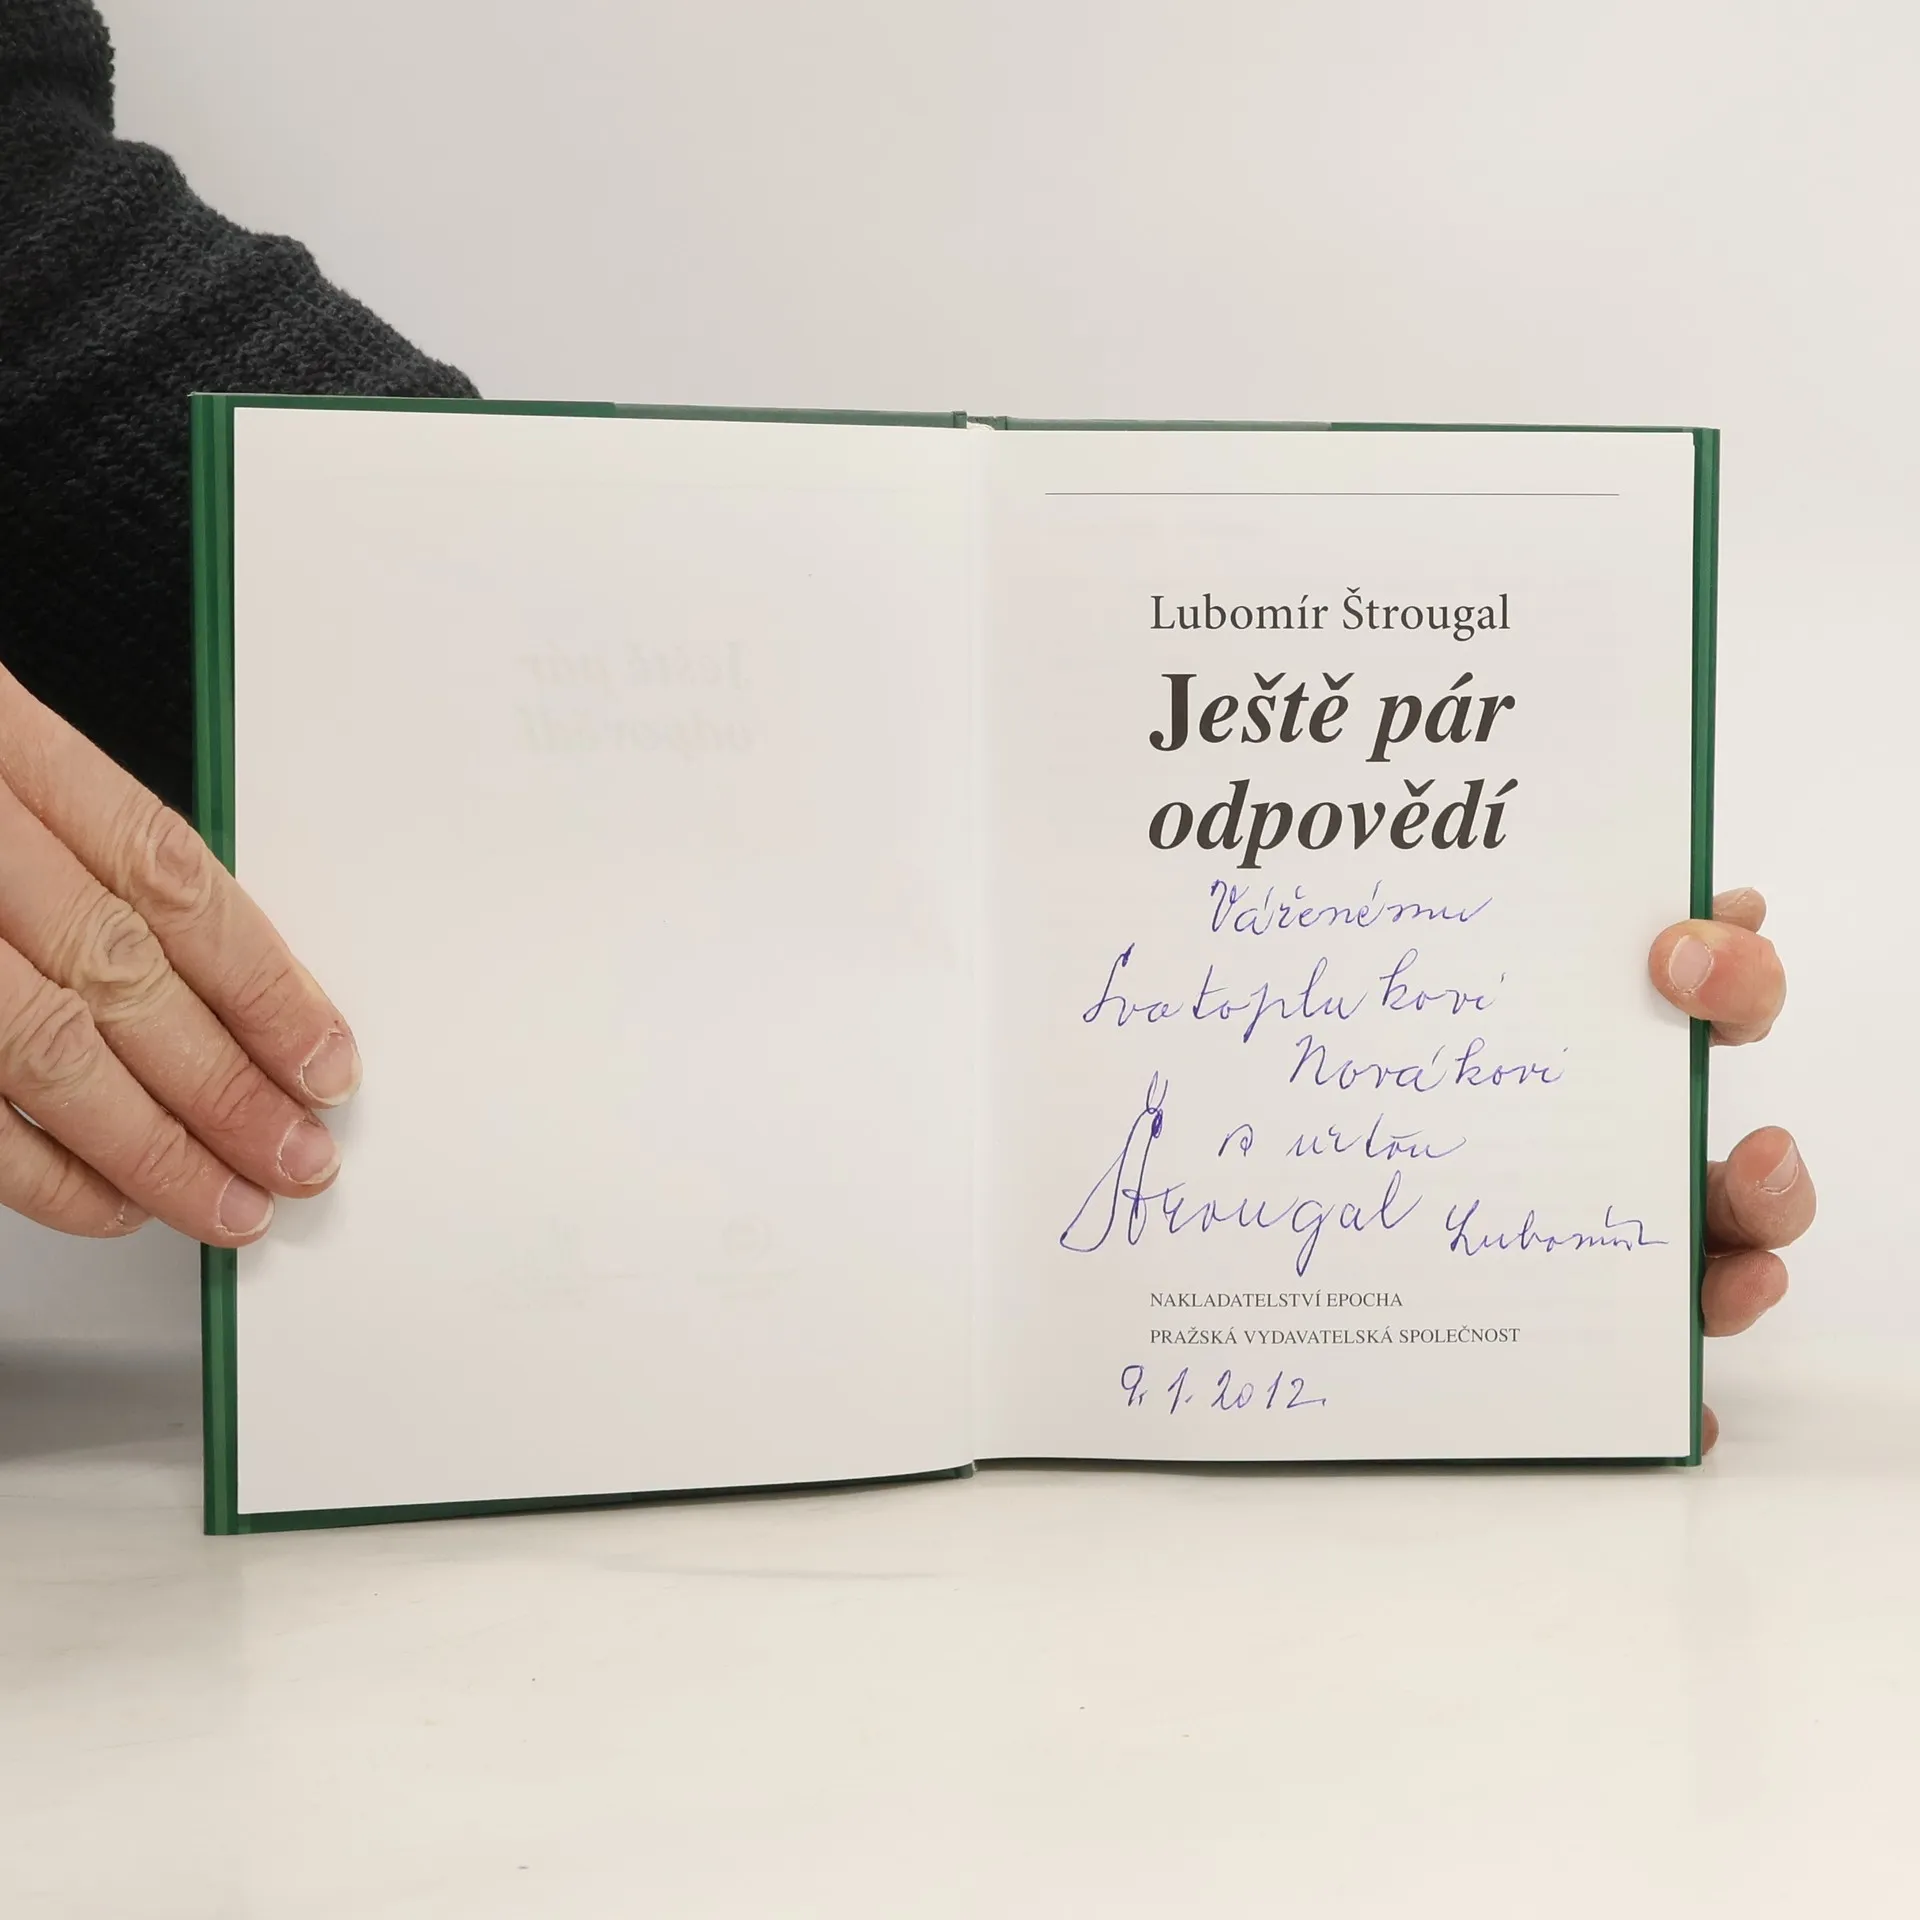 Lubomír Štrougal
Ještě pár
odpovědí
Váženému
Svatoplukovi
Novákovi
s úctou
Štrougal Lubomír
NAKLADATELSTVÍ EPOCHA
PRAŽSKÁ VYDAVATELSKÁ SPOLEČNOST
9. 1. 2012.